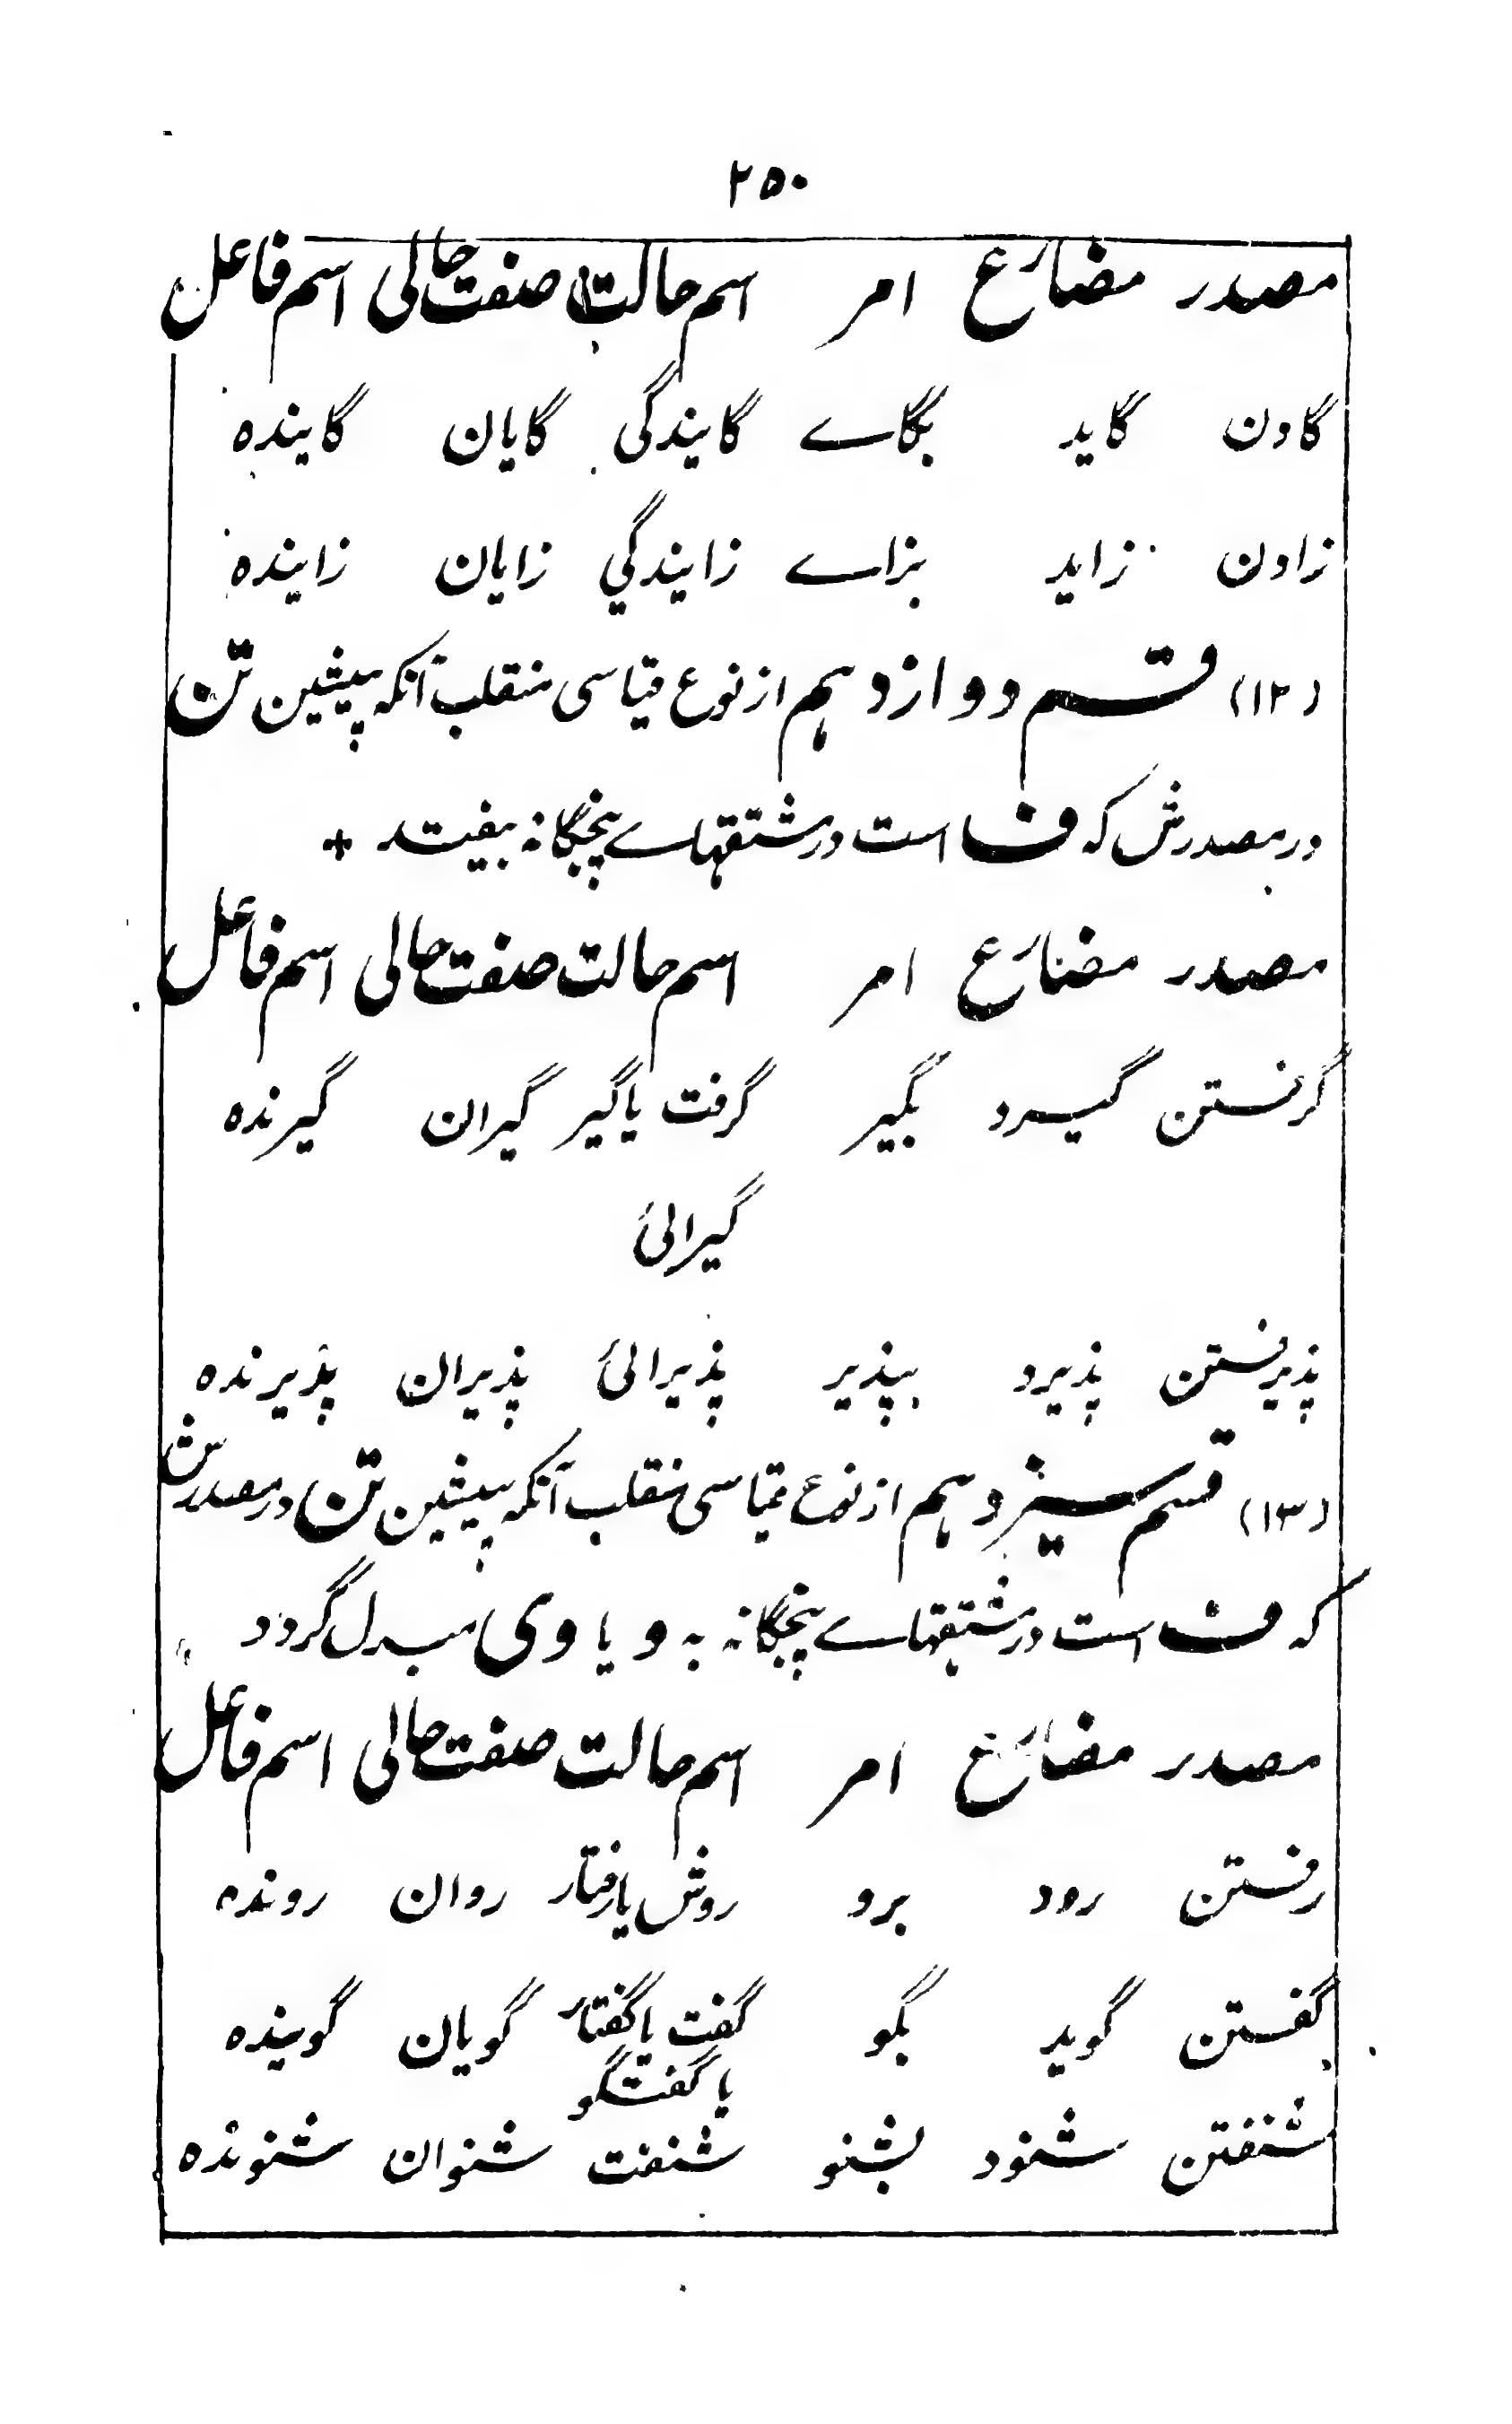 ۲۵۰
مصدر مضارع امر اسم حالت صفت حالی اسم فاعل
گادن گاید بگاے گایندگی گایان گاینده
زادن زاید بزاے زایندگي زایان زاینده
(۱۲) قسم دوازدهم از نوع قیاسی منقلب آنکه پیشین تن
در مصدرش که ف است در مشتقهاے پنجگانه بیفتد +
مصدر مضارع امر اسم حالت صفت حالی اسم فاعل
گرفتن گیرد بگیر گرفت یا گیر گیران گیرنده
گیرائ
پذیرفتن پذیرد بپذیر پذیرائ پذیران پذیرنده
(۱۳) قسم سیزدهم از نوع قیاسی منقلب آنکه پیشین تن در مصدرش
که ف است در مشتقهاے پنجگانه به و یا وی مبدل گردد
مصدر مضارع امر اسم حالت صفت حالی اسم فاعل
رفتن رود برو روش یا رفتار روان رونده
گفتن گوید بگو گفت یا گفتار گویان گوینده
یا گفتگو
شنفتن شنود بشنو شنفت شنوان شنونده